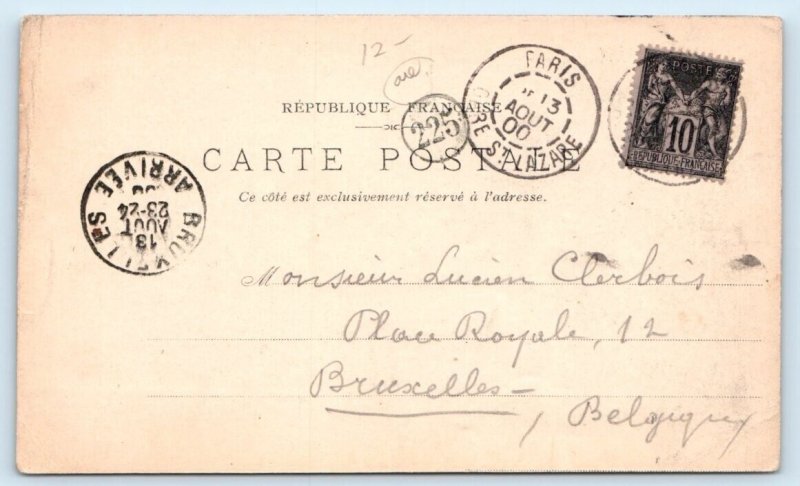 12-
PARIS
13
AOUT
00
GARE ST LAZARE
POSTES
10
RÉPUBLIQUE FRANÇAISE
RÉPUBLIQUE FRANÇAISE
225
CARTE POSTALE
Ce côté est exclusivement réservé à l'adresse.
BRUXELLES
13
AOUT
23-24
00
ARRIVÉE
Monsieur Lucien Clerbois
Place Royale, 12
Bruxelles -
, Belgique